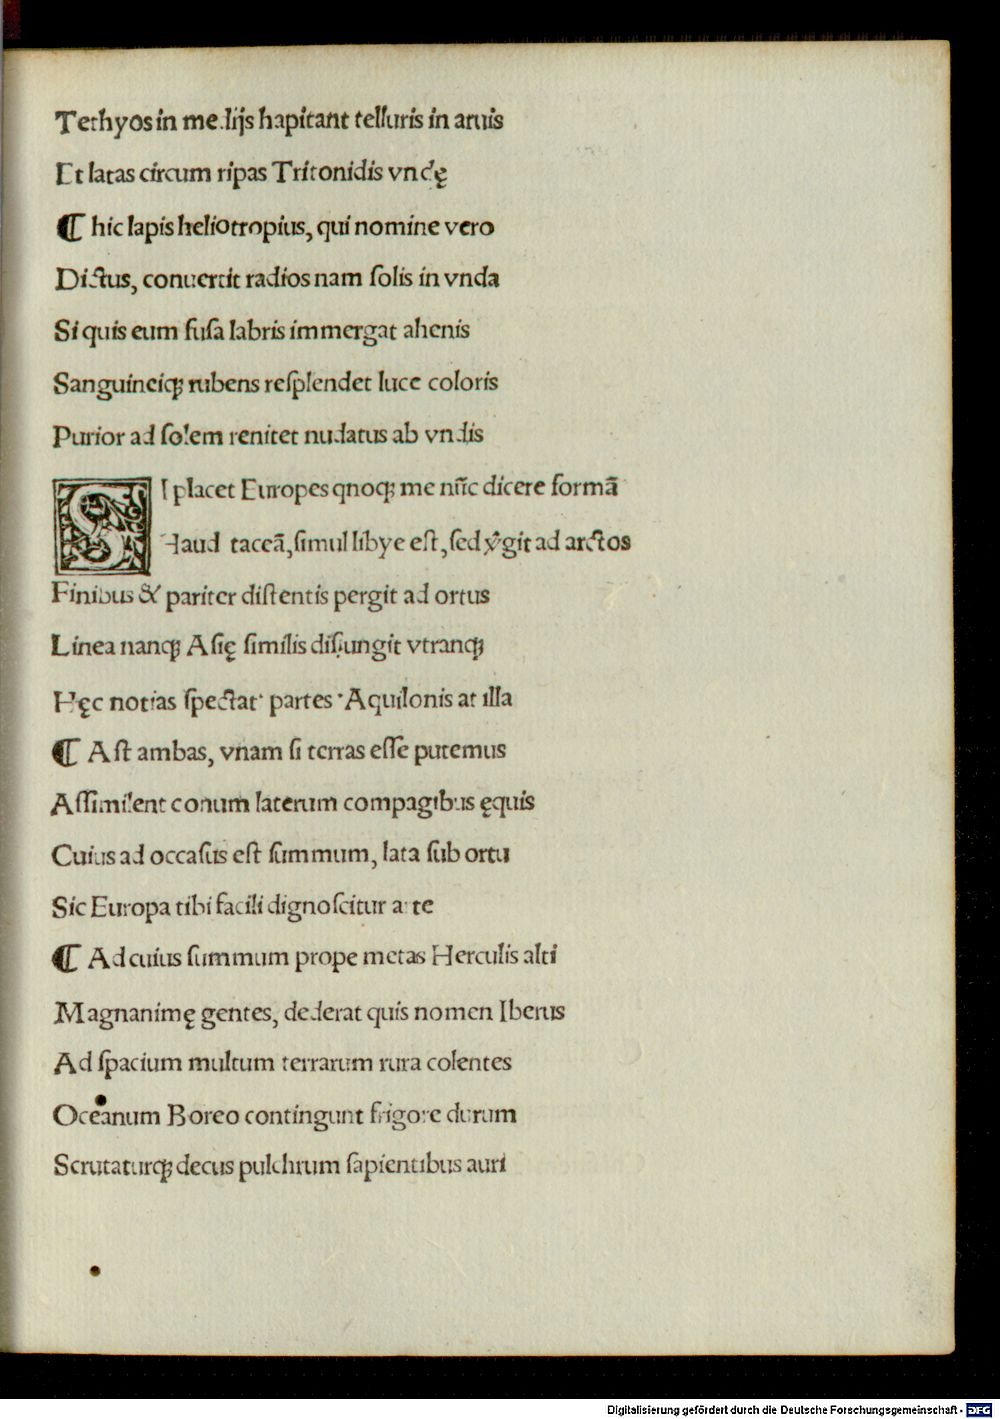 Tethyos in medijs hapitant telluris in aruis
Et latas circum ripas Tritonidis vndę
¶ hic lapis heliotropius, qui nomine vero
Dictus, conuertit radios nam ſolis in vnda
Si quis eum fuſa labris immergat ahenis
Sanguineiqꝫ rubens reſplendet luce coloris
Purior ad ſolem renitet nudatus ab vndis
SI placet Europes qnoqꝫ me nūc dicere formā
Haud taceā, ſimul libye eſt, ſed ꝟgit ad arctos
Finibus & pariter diſtentis pergit ad ortus
Linea nanqꝫ Aſię ſimilis diſiungit vtranqꝫ
Hęc notias ſpectat partes Aquilonis at illa
¶ Aſt ambas, vnam ſi terras eſſe putemus
Aſſimilent conum laterum compagibus ęquis
Cuius ad occaſus eſt ſummum, lata ſub ortu
Sic Europa tibi facili dignoſcitur arte
¶ Ad cuius ſummum prope metas Herculis alti
Magnanimę gentes, dederat quis nomen Iberus
Ad ſpacium multum terrarum rura colentes
Oceanum Boreo contingunt frigore durum
Scrutaturqꝫ decus pulchrum ſapientibus auri
Digitalisierung gefördert durch die Deutsche Forschungsgemeinschaft - DFG